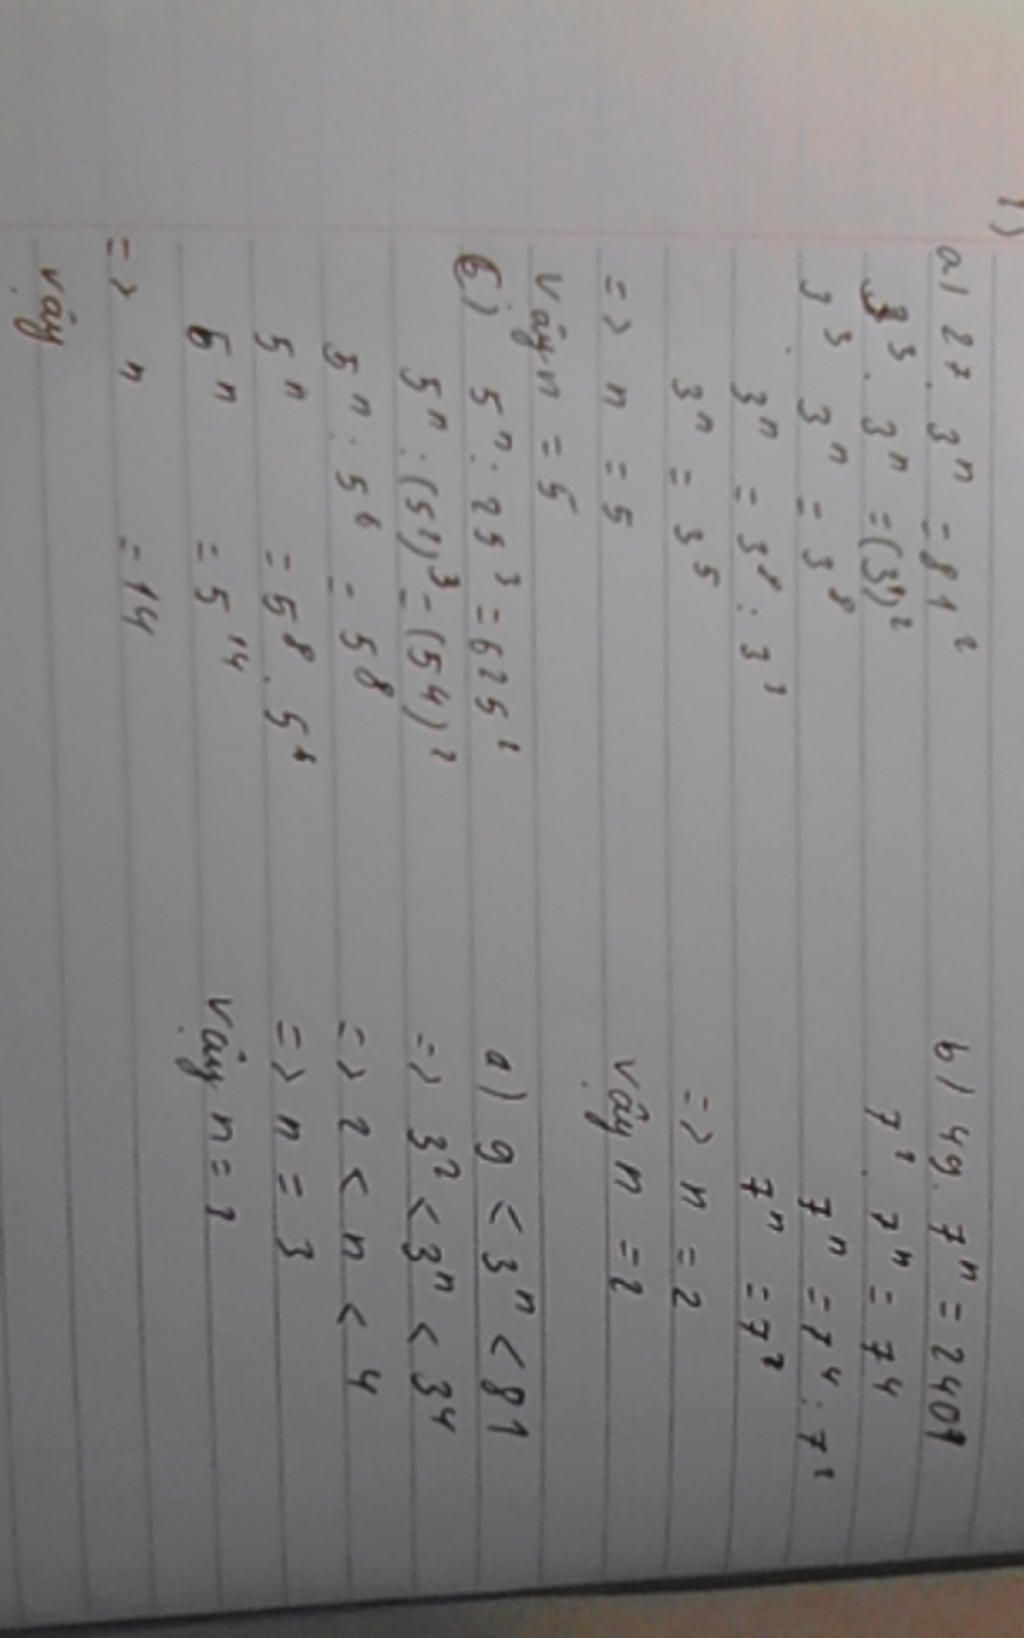 1)
a) 27 . 3ⁿ = 81²
3³ . 3ⁿ = (3⁴)²
3³ . 3ⁿ = 3⁸
3ⁿ = 3⁸ : 3³
3ⁿ = 3⁵
=> n = 5
Vậy n = 5
b) 49 . 7ⁿ = 2401
7² . 7ⁿ = 7⁴
7ⁿ = 7⁴ : 7²
7ⁿ = 7²
=> n = 2
Vậy n = 2
5ⁿ : 25³ = 625²
5ⁿ : (5²)³ = (5⁴)²
5ⁿ : 5⁶ = 5⁸
5ⁿ = 5⁸ . 5⁶
5ⁿ = 5¹⁴
=> n = 14
Vậy
a) 9 < 3ⁿ < 81
=> 3² < 3ⁿ < 3⁴
=> 2 < n < 4
=> n = 3
Vậy n = 3